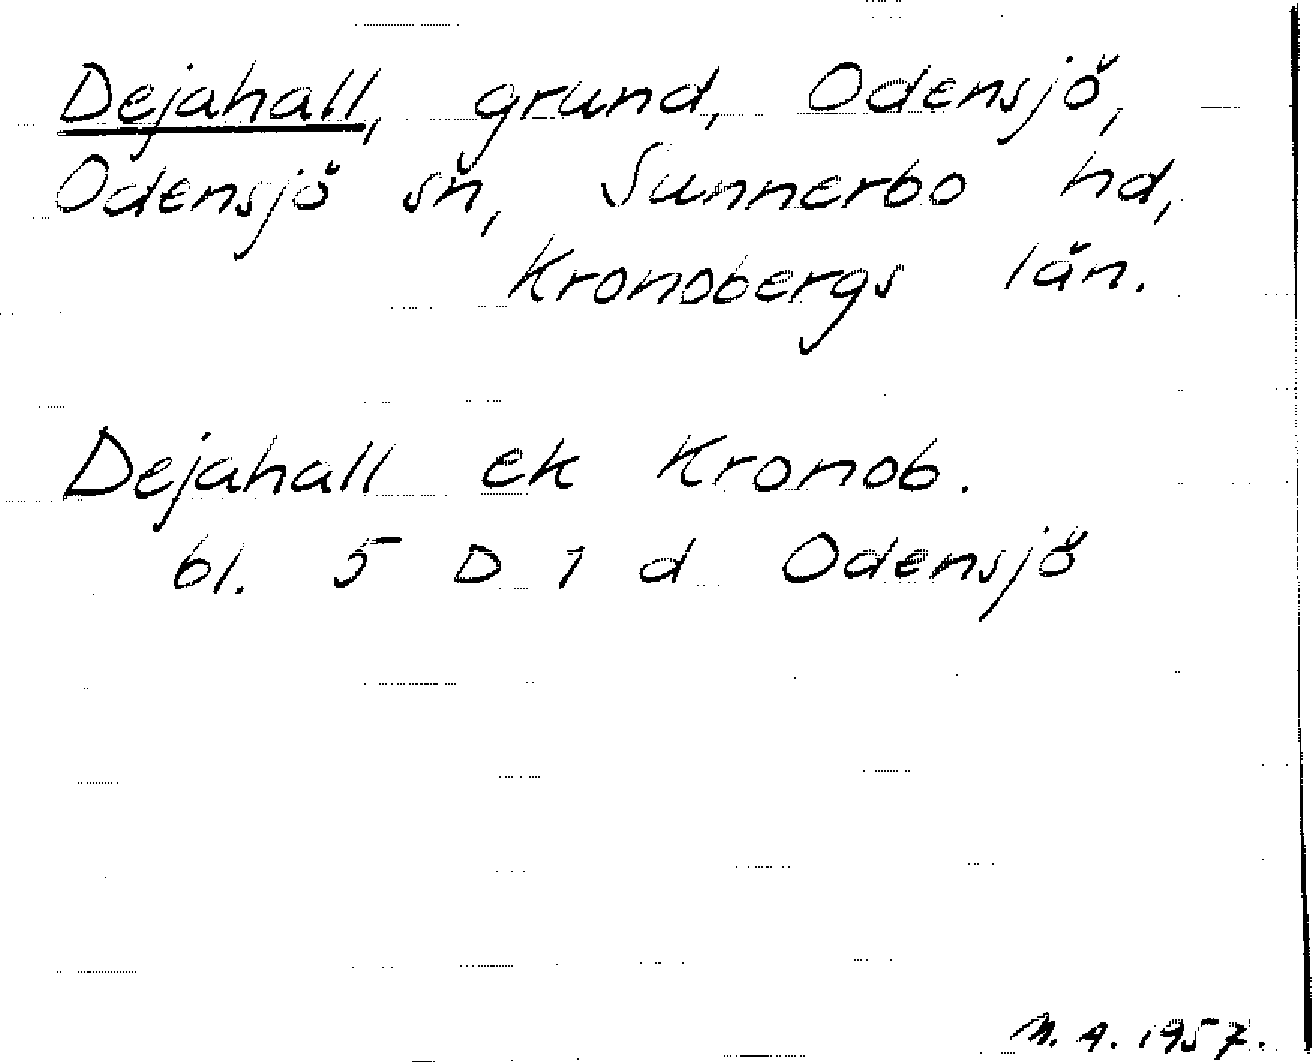 Dejahall, grund, Odensjö,
Odensjö sn, Sunnerbo hd,
Kronobergs län.
Dejahall ek Kronob.
bl. 5 D 1 d Odensjö
M. A. 1957.